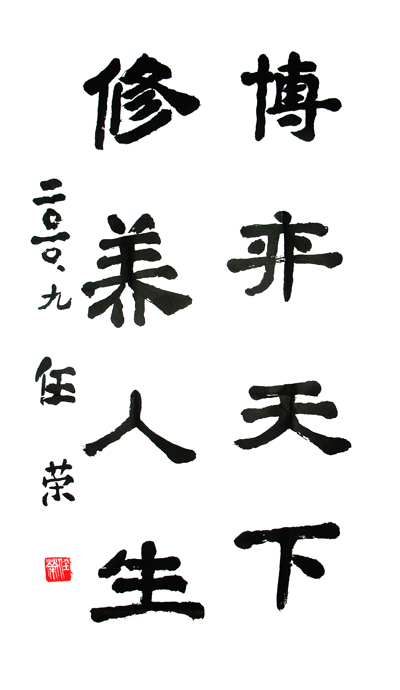 博弈天下
修养人生
二〇一〇、九 任荣
任荣